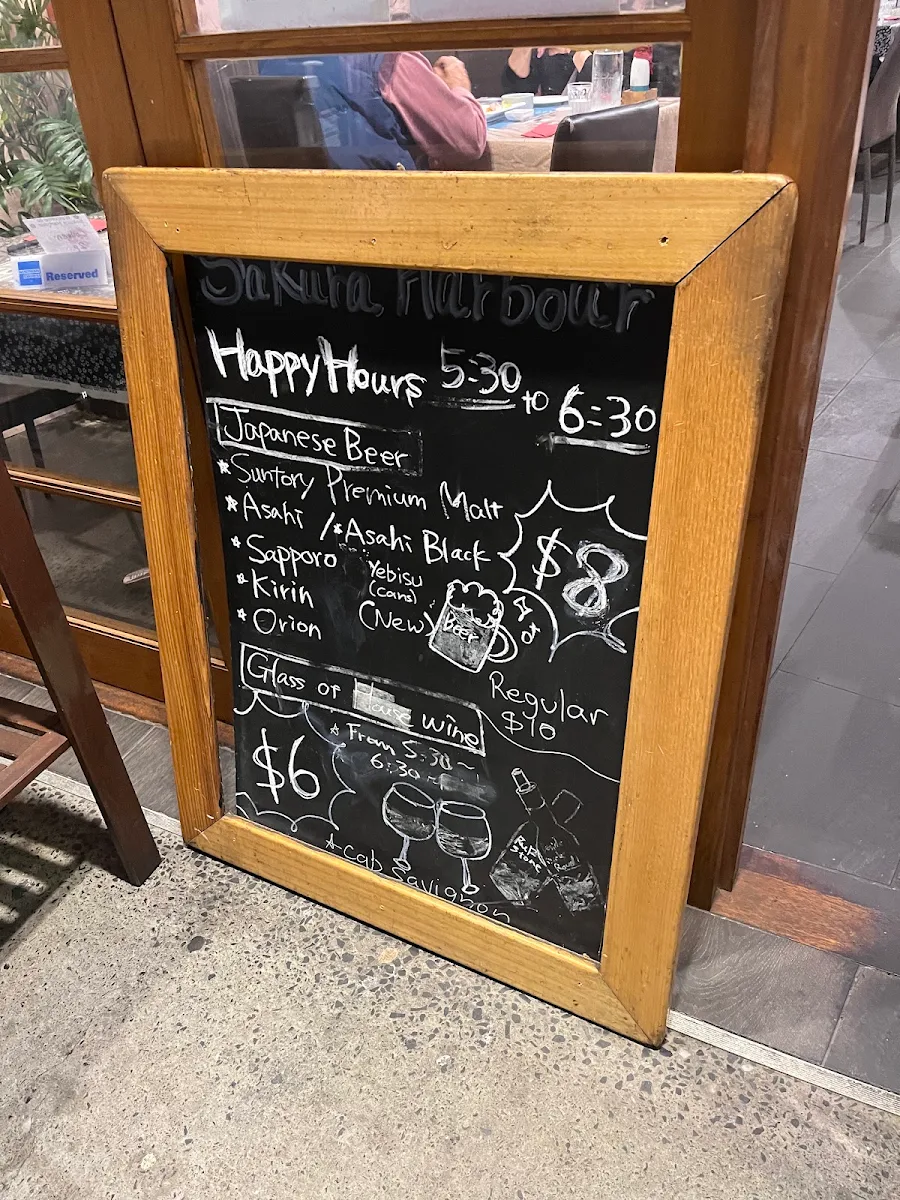 Reserved
Sakura Harbour
Happy Hours 5:30 to 6:30
Japanese Beer
*Suntory Premium Malt
*Asahi /*Asahi Black
*Sapporo
Yebisu
(cans)
(New)
*Kirin
*Orion
Beer
$8
Regular
$10
Glass of House wine
$6
*From 5:30~
6:30~
*Cab Savignon